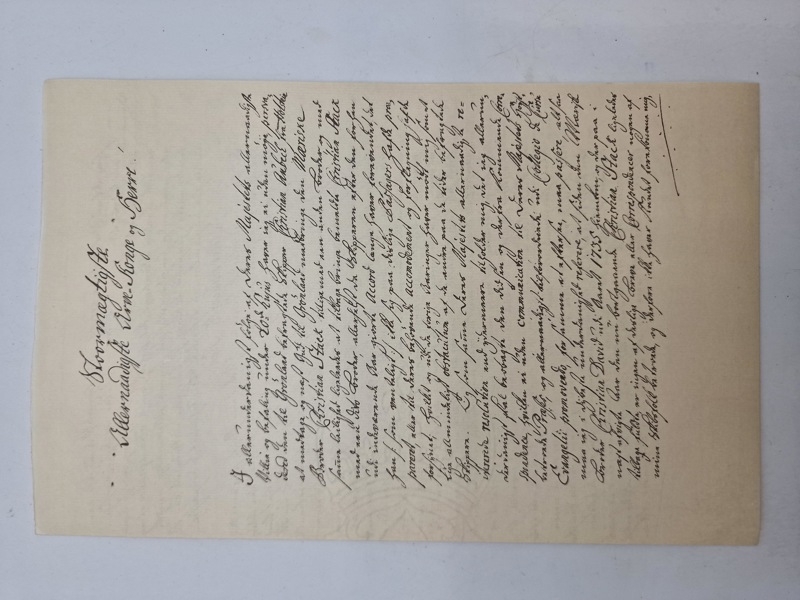 Stoormægtigste
Allernaadigste Arve-Konge og Herre!
I allerunderdanigst følge af Deres Majestets allernaadigste
Villie og befaling under 20de hujus haver jeg ei uden möye persva-
dered den til Grönland befragtede Skipper Christian Anbeil fra Holstein
at medtage og næst Gud til Grönland medbringe den Mæriske
Broder Christian Stack tillige med een anden broder og med
samme leilighed ligeledes at tilbagebringe bemeldte Christian Stack
med een dito Broder, allerhelst da Skipperen efter den for han
udi indeværende Aar giorte Accord lange haver forevendet det
han /: som venteligt :/ ikke sig paa dislige Passagers hafde præ-
pareret, eller til deres behövende accomodement og forpleyning hafde
forsiunet; hvilket og udi de forige Aaringer haver mött mig som et
lige almindeligt obstaculum af de andre paa de tider befragtede
Skippere. Og som samme Deres Majestets allernaadigste re-
resolution end ydermeere tilholder mig det jeg allerun-
derdanigst skal beobagte den didsen og derfra kommende Corre-
spondence, hvilken ei uden communication til Deres Majestets höyst-
betroede Præses, og allernaadigst tilforordnede udi Collegio de Cursu
Evangelii promovendo, for samme at eftersee, maa passere, altsaa
maa jeg i dybeste underdanighed referere, at siden den Mærisk
Broder Christian David udi Aaret 1735 hiemkom, og der paa i
næst afvigte Aar den nu bortgaaende Christian Stack ligeledes
tilbage fuldte, er ingen af deslige breve eller Correspondencer nogen af
mine Skibsfolk betroede, og derfore ikke haver kundet forekomme mig,